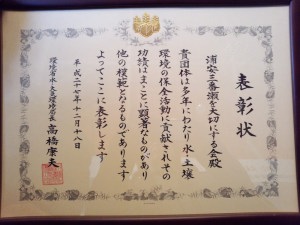 表彰状
浦安三番瀬を大切にする会殿
貴団体は多年にわたり水・土壌
環境の保全活動に貢献されその
功績はまことに顕著なものがあり
他の模範となるものであります
よってここに表彰します
平成二十七年十二月十八日
環境省水・大気環境局長 高橋康夫